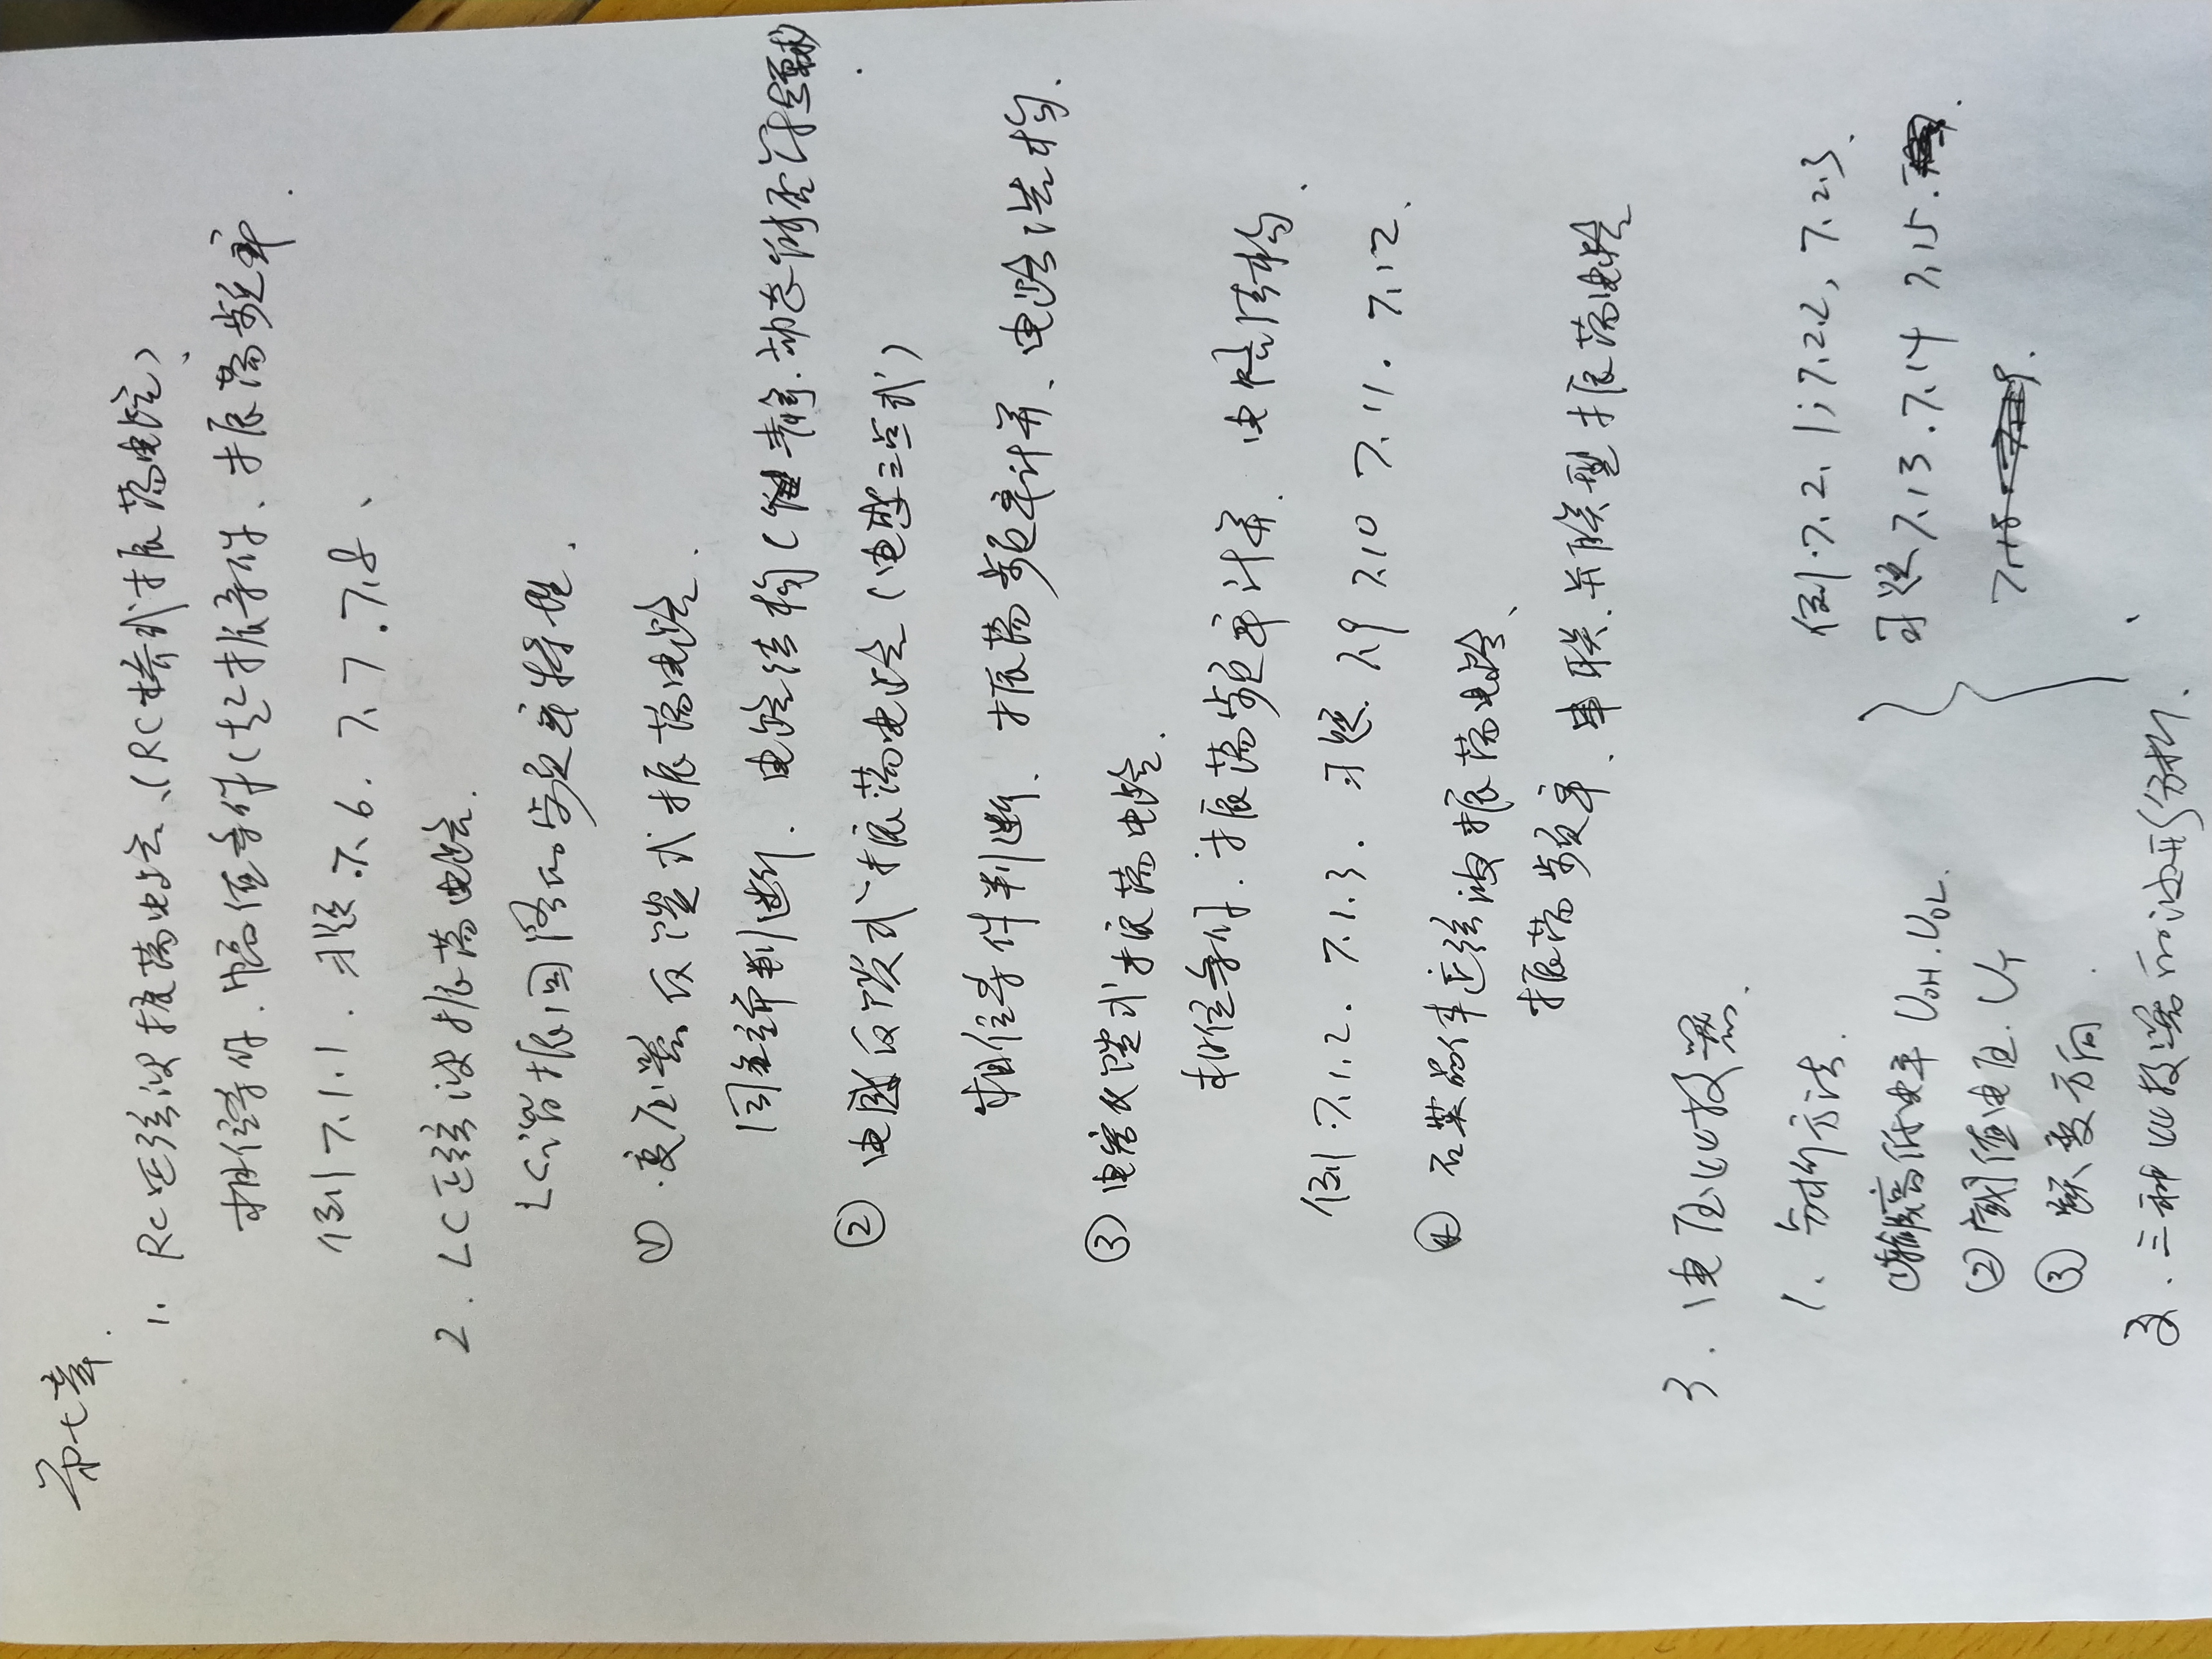 第七章.
1. RC正弦波振荡电路、(RC桥式振荡电路)
相位条件、幅值条件(起振条件、振荡频率.
例7.1.1. 习题 7.6. 7.7. 7.8、
2. LC正弦波振荡电路.
LC谐振回路的频率特性.
① 变压器反馈式振荡电路.
同名端判断. 电路结构( 静.动态能否符合要求)
② 电感反馈式振荡电路(电感三点式)
相位条件判断、振荡频率计算、电路结构.
③ 电容反馈式振荡电路.
相位条件、振荡频率计算. 电路结构.
例7.1.2. 7.1.3. 习题 7.9 7.10 7.11. 7.12.
④ 石英晶体正弦波振荡电路、
振荡频率、串联.并联型振荡电路
3. 电压比较器.
1. 分析方法.
①输出高低电平 UOH.UOL.
②阈值电压. UT
③ 跃变方向.
例7.2.1; 7.2.2, 7.2.3.
习题7.13.7.14 7.15.
2. 三种比较器的波形分析.